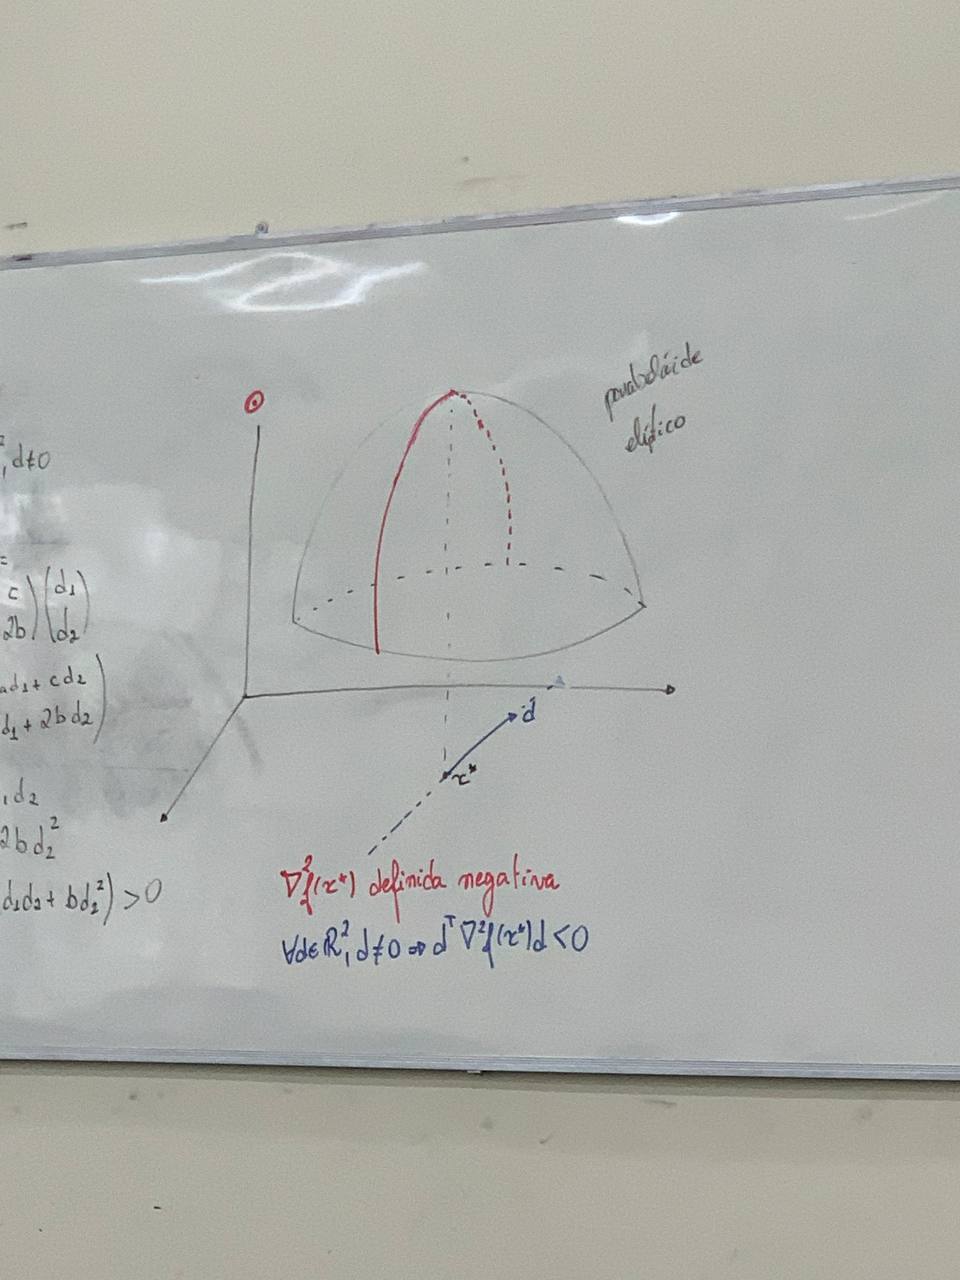 ², d≠0
=
c) (d₁)
2b) (d₂)
ad₁ + cd₂)
d₁ + 2bd₂)
d₂
2bd₂²
d₁d₂ + bd₂²) > 0
parabolóide
elíptico
d
x*
∇²f(x*) definida negativa
∀d∈ℝ², d≠0 ⇒ dᵀ∇²f(x*)d < 0